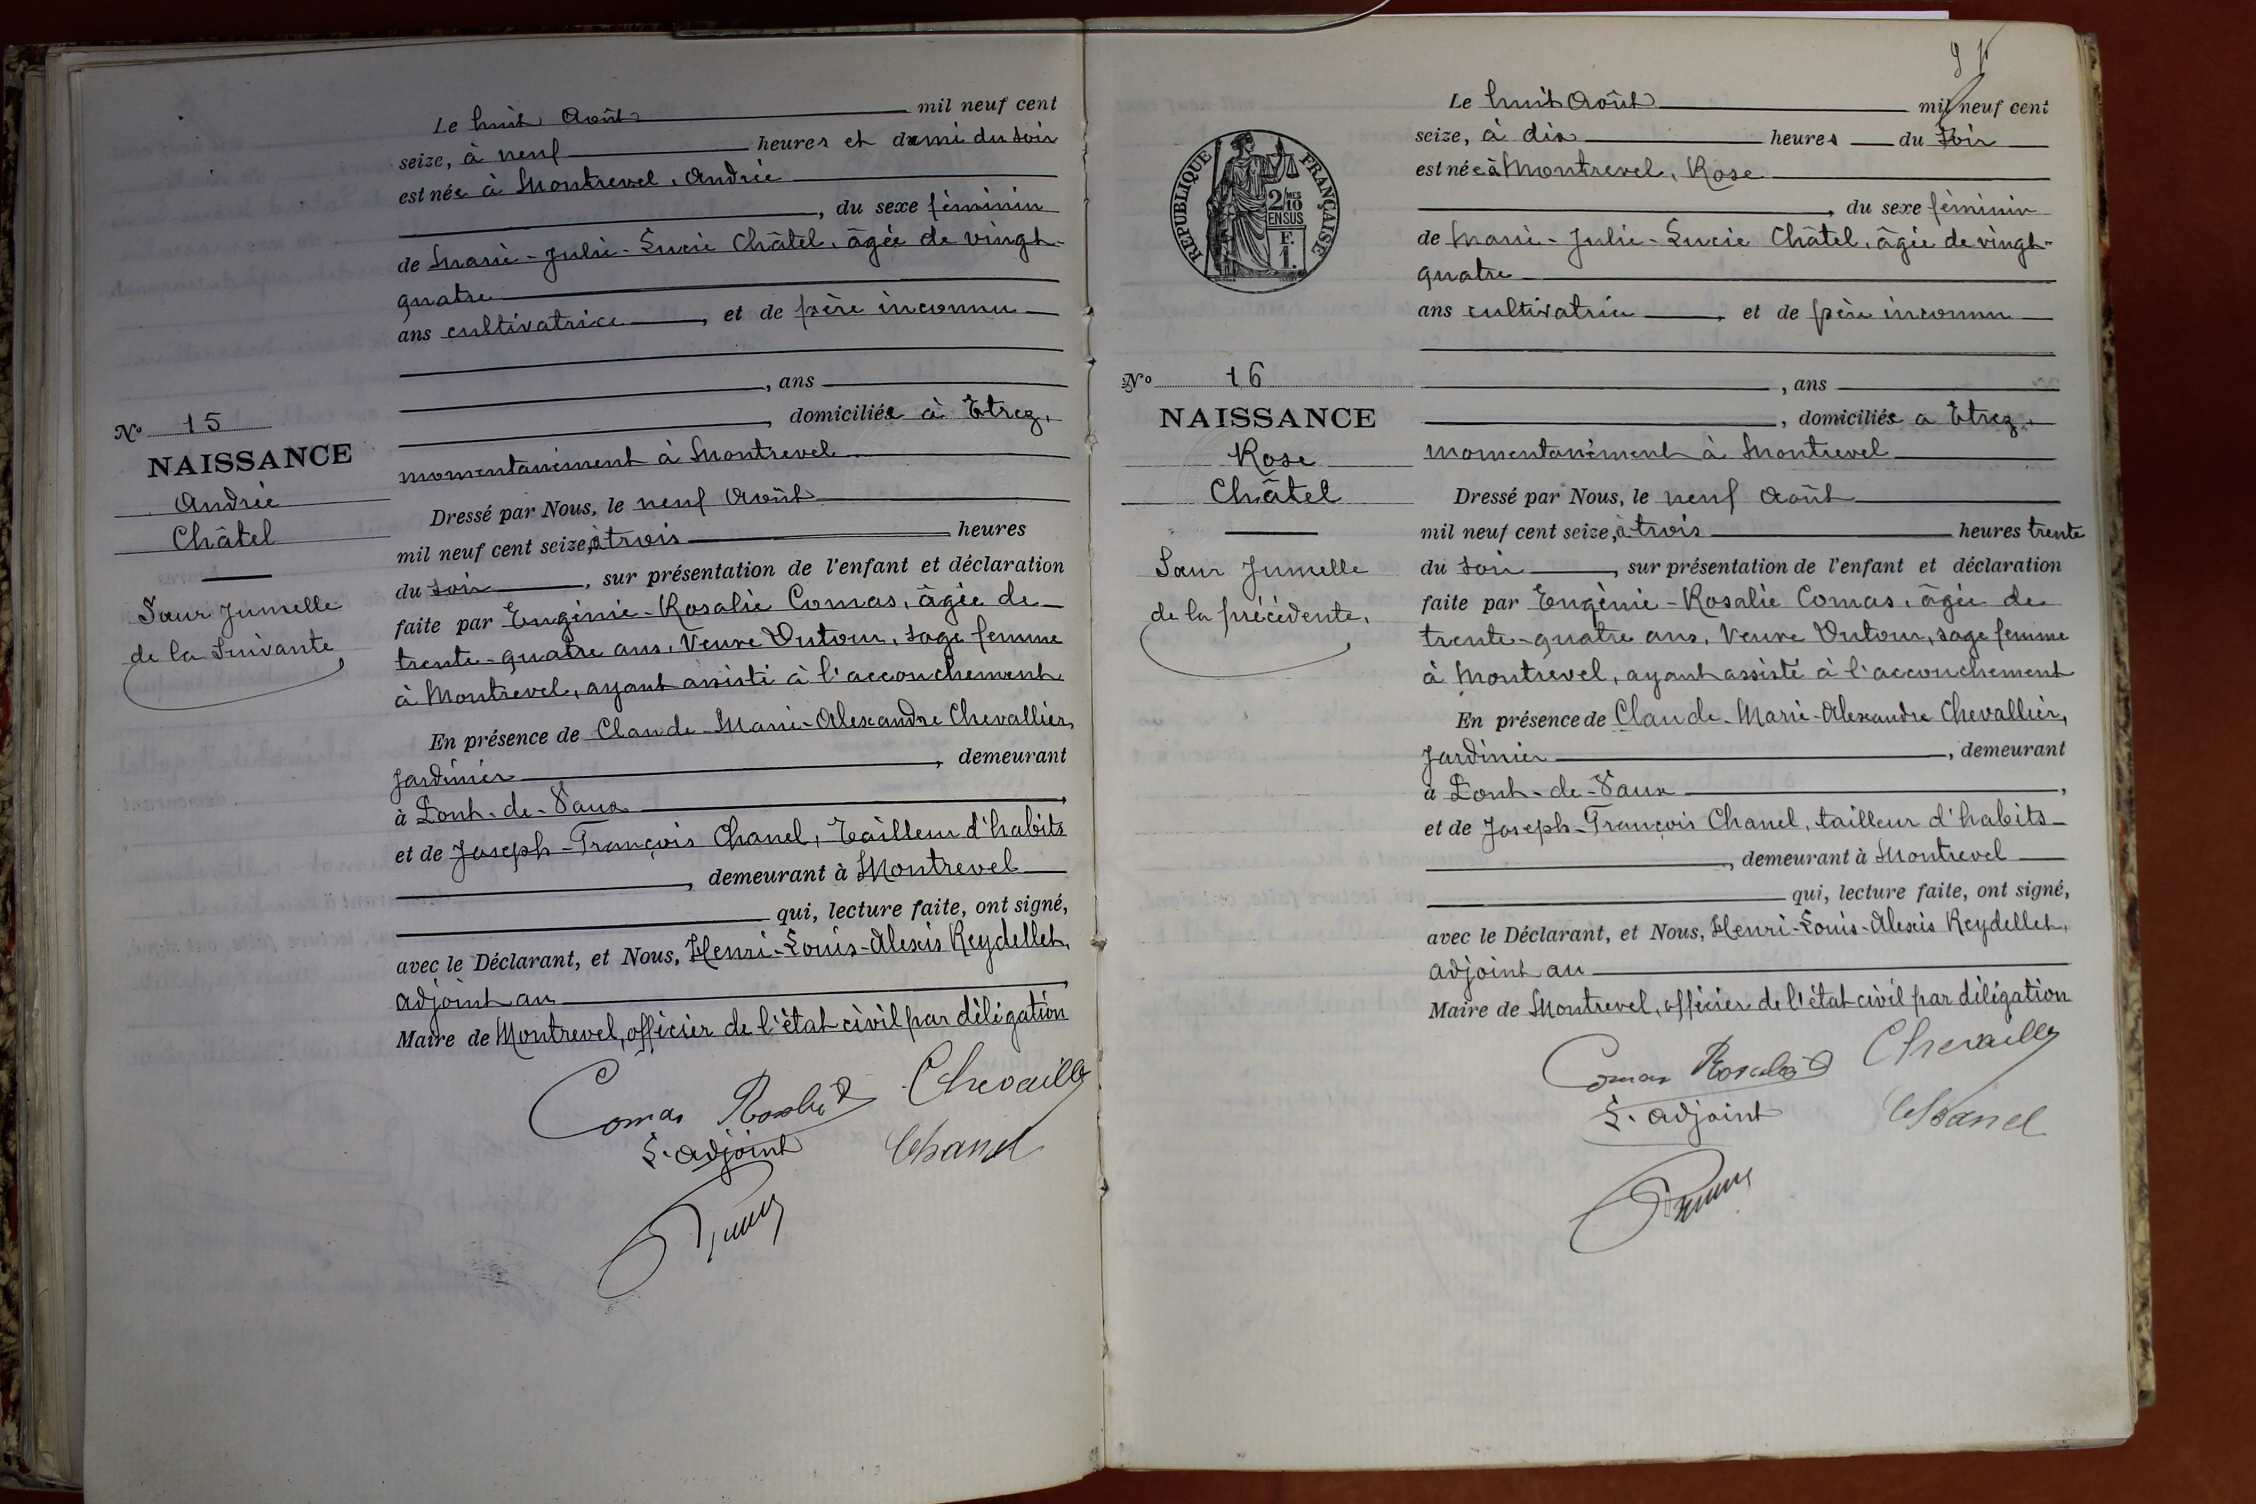 Le huit Août mil neuf cent
seize, à neuf heures et demi du soir
est née à Montrevel, Andrée
, du sexe féminin
de Marie-Julie-Lucie Châtel, âgée de vingt-
quatre
ans cultivatrice, et de père inconnu
, ans
, domiciliée à Etrez,
momentanément à Montrevel
No 15
NAISSANCE
Andrée
Châtel
Sœur Jumelle
de la Suivante
Dressé par Nous, le neuf Août
mil neuf cent seize, à trois heures
du soir, sur présentation de l'enfant et déclaration
faite par Eugénie-Rosalie Comas, âgée de
trente-quatre ans, Veuve Dutour, sage femme
à Montrevel, ayant assisté à l'accouchement
En présence de Claude-Marie-Alexandre Chevallier,
Jardinier, demeurant
à Pont-de-Vaux,
et de Joseph-François Chanel, Tailleur d'habits
, demeurant à Montrevel
qui, lecture faite, ont signé,
avec le Déclarant, et Nous, Henri-Louis-Alexis Reydellet,
adjoint au,
Maire de Montrevel, officier de l'état civil par délégation
Comas Rosalie Chevallier
L. adjoint Chanel
9
Le huit Août mil neuf cent
seize, à dix heures du soir
est née à Montrevel, Rose
, du sexe féminin
de Marie-Julie-Lucie Châtel, âgée de vingt-
quatre
ans cultivatrice, et de père inconnu
, ans
, domiciliée a Etrez,
momentanément à Montrevel
RÉPUBLIQUE FRANÇAISE
2/10 MES
EN SUS
F.
1.
No 16
NAISSANCE
Rose
Châtel
Sœur Jumelle
de la précédente.
Dressé par Nous, le neuf Août
mil neuf cent seize, à trois heures trente
du soir, sur présentation de l'enfant et déclaration
faite par Eugénie-Rosalie Comas, âgée de
trente-quatre ans, Veuve Dutour, sage femme
à Montrevel, ayant assisté à l'accouchement
En présence de Claude-Marie-Alexandre Chevallier,
Jardinier, demeurant
à Pont-de-Vaux,
et de Joseph-François Chanel, tailleur d'habits
, demeurant à Montrevel
qui, lecture faite, ont signé,
avec le Déclarant, et Nous, Henri-Louis-Alexis Reydellet,
adjoint au
Maire de Montrevel, officier de l'état civil par délégation
Comas Rosalie Chevallier
L. adjoint Chanel